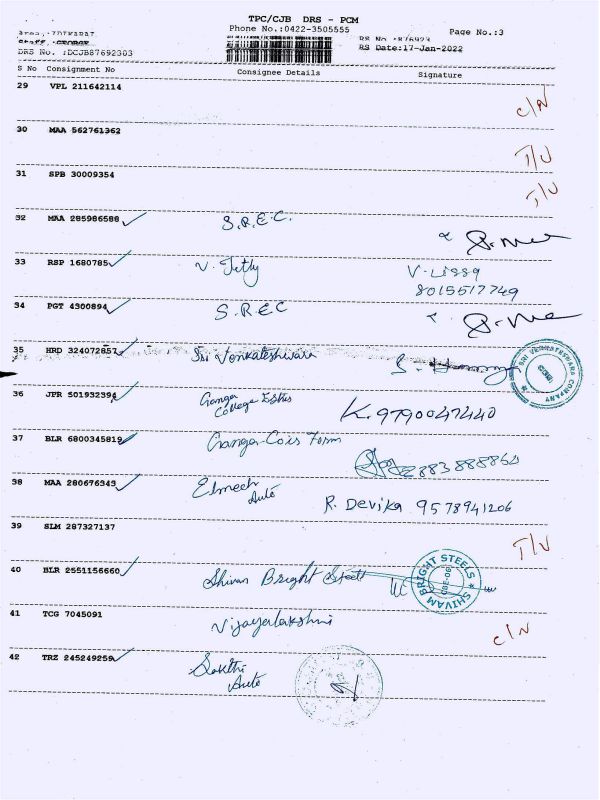 TPC/CJB DRS - PCM
Phone No.:0422-3505555 Page No.:3
Staff :GEORGE RS No :876923
DRS No. :DCJB87692303 RS Date:17-Jan-2022
S No Consignment No Consignee Details Signature
29 VPL 211642114 C/N
30 MAA 562761362 T/U
31 SPB 30009354 T/U
32 MAA 285986588 S.R.E.C.
33 RSP 1680785 V. Jetly V-Lissa
8015517749
34 PGT 4300894 S.REC
35 HRD 324072857 Sri Venkateshwara SRI VENKATESHWARA COMPANY
36 JPR 501932394 Ganga College K.9790047440
37 BLR 6800345819 Ganga
38 MAA 280676343 Elmech Auto R. Devika 9578941206
39 SLM 287327137 T/U
40 BLR 2551156660 Shivam Bright Steel SHIVAM BRIGHT STEELS CBE-06
41 TCG 7045091 Vijayalakshmi C/N
42 TRZ 245249259 Sakthi Auto